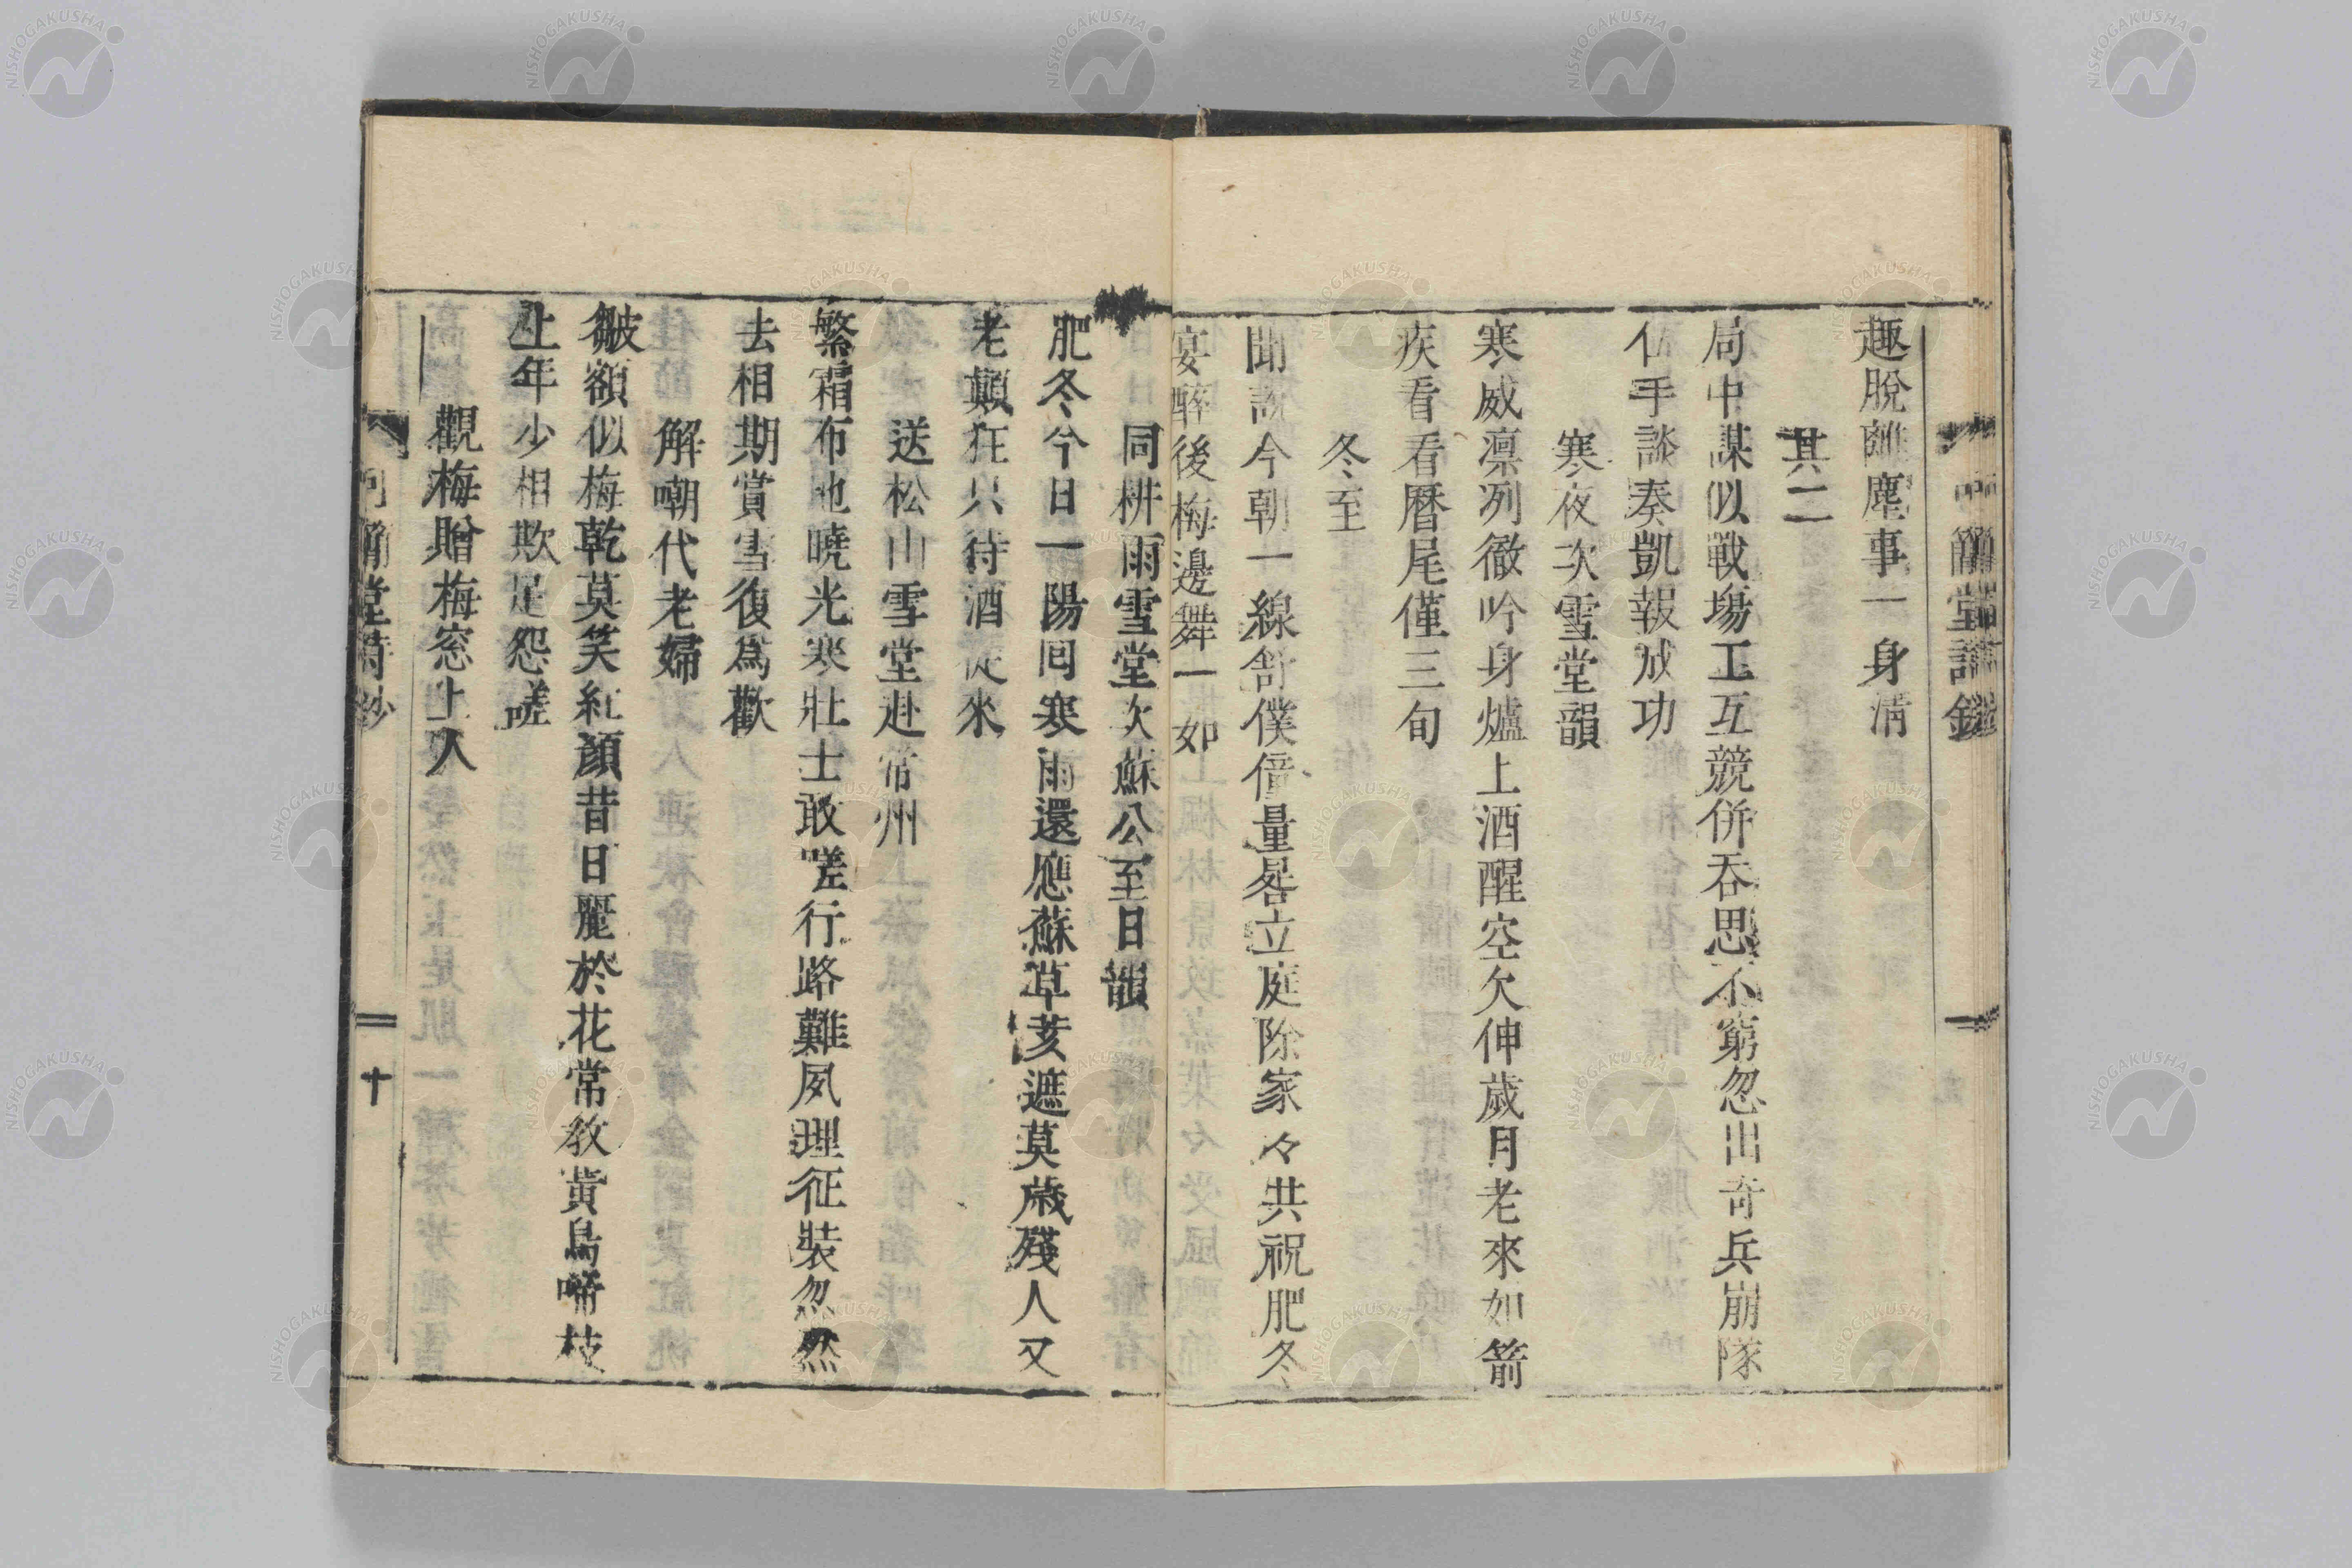 趣脫離塵事一身淸
其二
局中謀似戰場工互競併吞思不窮忽出奇兵崩隊
仆手談奏凱報成功
寒夜次雪堂韻
寒威凛冽徹吟身爐上酒醒空欠伸歲月老來如箭
疾看看曆尾僅三旬
冬至
聞說今朝一線舒僕僮量晷立庭除家々共祝肥冬
宴醉後梅邊舞一如
同耕雨雪堂次蘇公至日韻
肥冬今日一陽囘寒雨還應蘇草荄遮莫歲殘人又
老顚狂只待酒從來
送松山雪堂赴常州
繁霜布地曉光寒壯士敢嗟行路難夙理征裝忽然
去相期賞雪復爲歡
解嘲代老婦
皺額似梅乾莫笑紅顏昔日麗於花常敎黃鳥啼枝
上年少相欺足怨嗟
觀梅贈梅窓上人
堂詩鈔
十
NISHOGAKUSHA